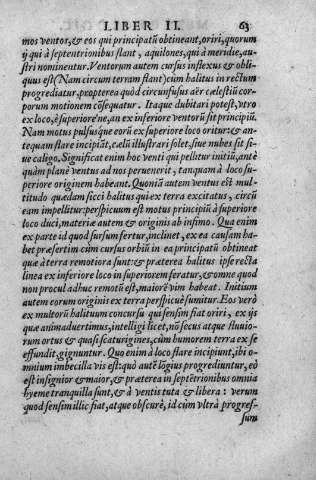 LIBER II. 63
mos ventor, & eos qui principatū obtineant, oriri, quorum
ij qui à septentrionibus flant, aquilones, qui à meridie, au-
stri nominentur. Ventorum autem cursus inflexus & obli-
quus est (Nam circum terram flant) cùm halitus in rectum
progrediatur, propterea quòd circunfusus aër cælestiū cor-
porum motionem cōsequatur. Itaque dubitari potest, vtro
ex loco, è superiore'ne, an ex inferiore ventorū sit principiū.
Nam motus pulsusque eorū ex superiore loco oritur: & an-
tequam flare incipiūt, cælū illustrari solet, siue nubes sit si-
ue caligo. Significat enim hoc venti qui pellitur initiū, antè
quàm planè ventus ad nos peruenerit, tanquam à loco su-
periore originem habeant. Quoniā autem ventus est mul-
titudo quædam sicci halitus qui ex terra excitatus, circū
eam impellitur: perspicuum est motus principiū à superiore
loco duci, materiæ autem & originis ab infimo. Qua enim
ex parte id quod sursum fertur, inclinet, ex ea causam ha-
bet præsertim cùm cursus orbiū in ea principatū obtineat
quæ à terra remotiora sunt: & præterea halitus ipse recta
linea ex inferiore loco in superiorem feratur, & omne quod
non procul adhuc remotū est, maiorē vim habeat. Initium
autem eorum originis ex terra perspicuè sumitur. Eos verò
ex multorū halituum concursu qui sensim fiat oriri, ex ijs
quæ animaduertimus, intelligi licet, nō secus atque fluuio-
rum ortus & quasi scaturigines, cùm humorem terra ex se
effundit, gignuntur. Quo enim à loco flare incipiunt, ibi o-
mnium imbecilla vis est: quò autē lōgius progrediuntur, eò
est insignior & maior, & præterea in septētrionibus omnia
hyeme tranquilla sunt, & à ventis tuta & libera: verum
quod sensim illic fiat, atque obscurè, id cùm vltrà progres-
sum